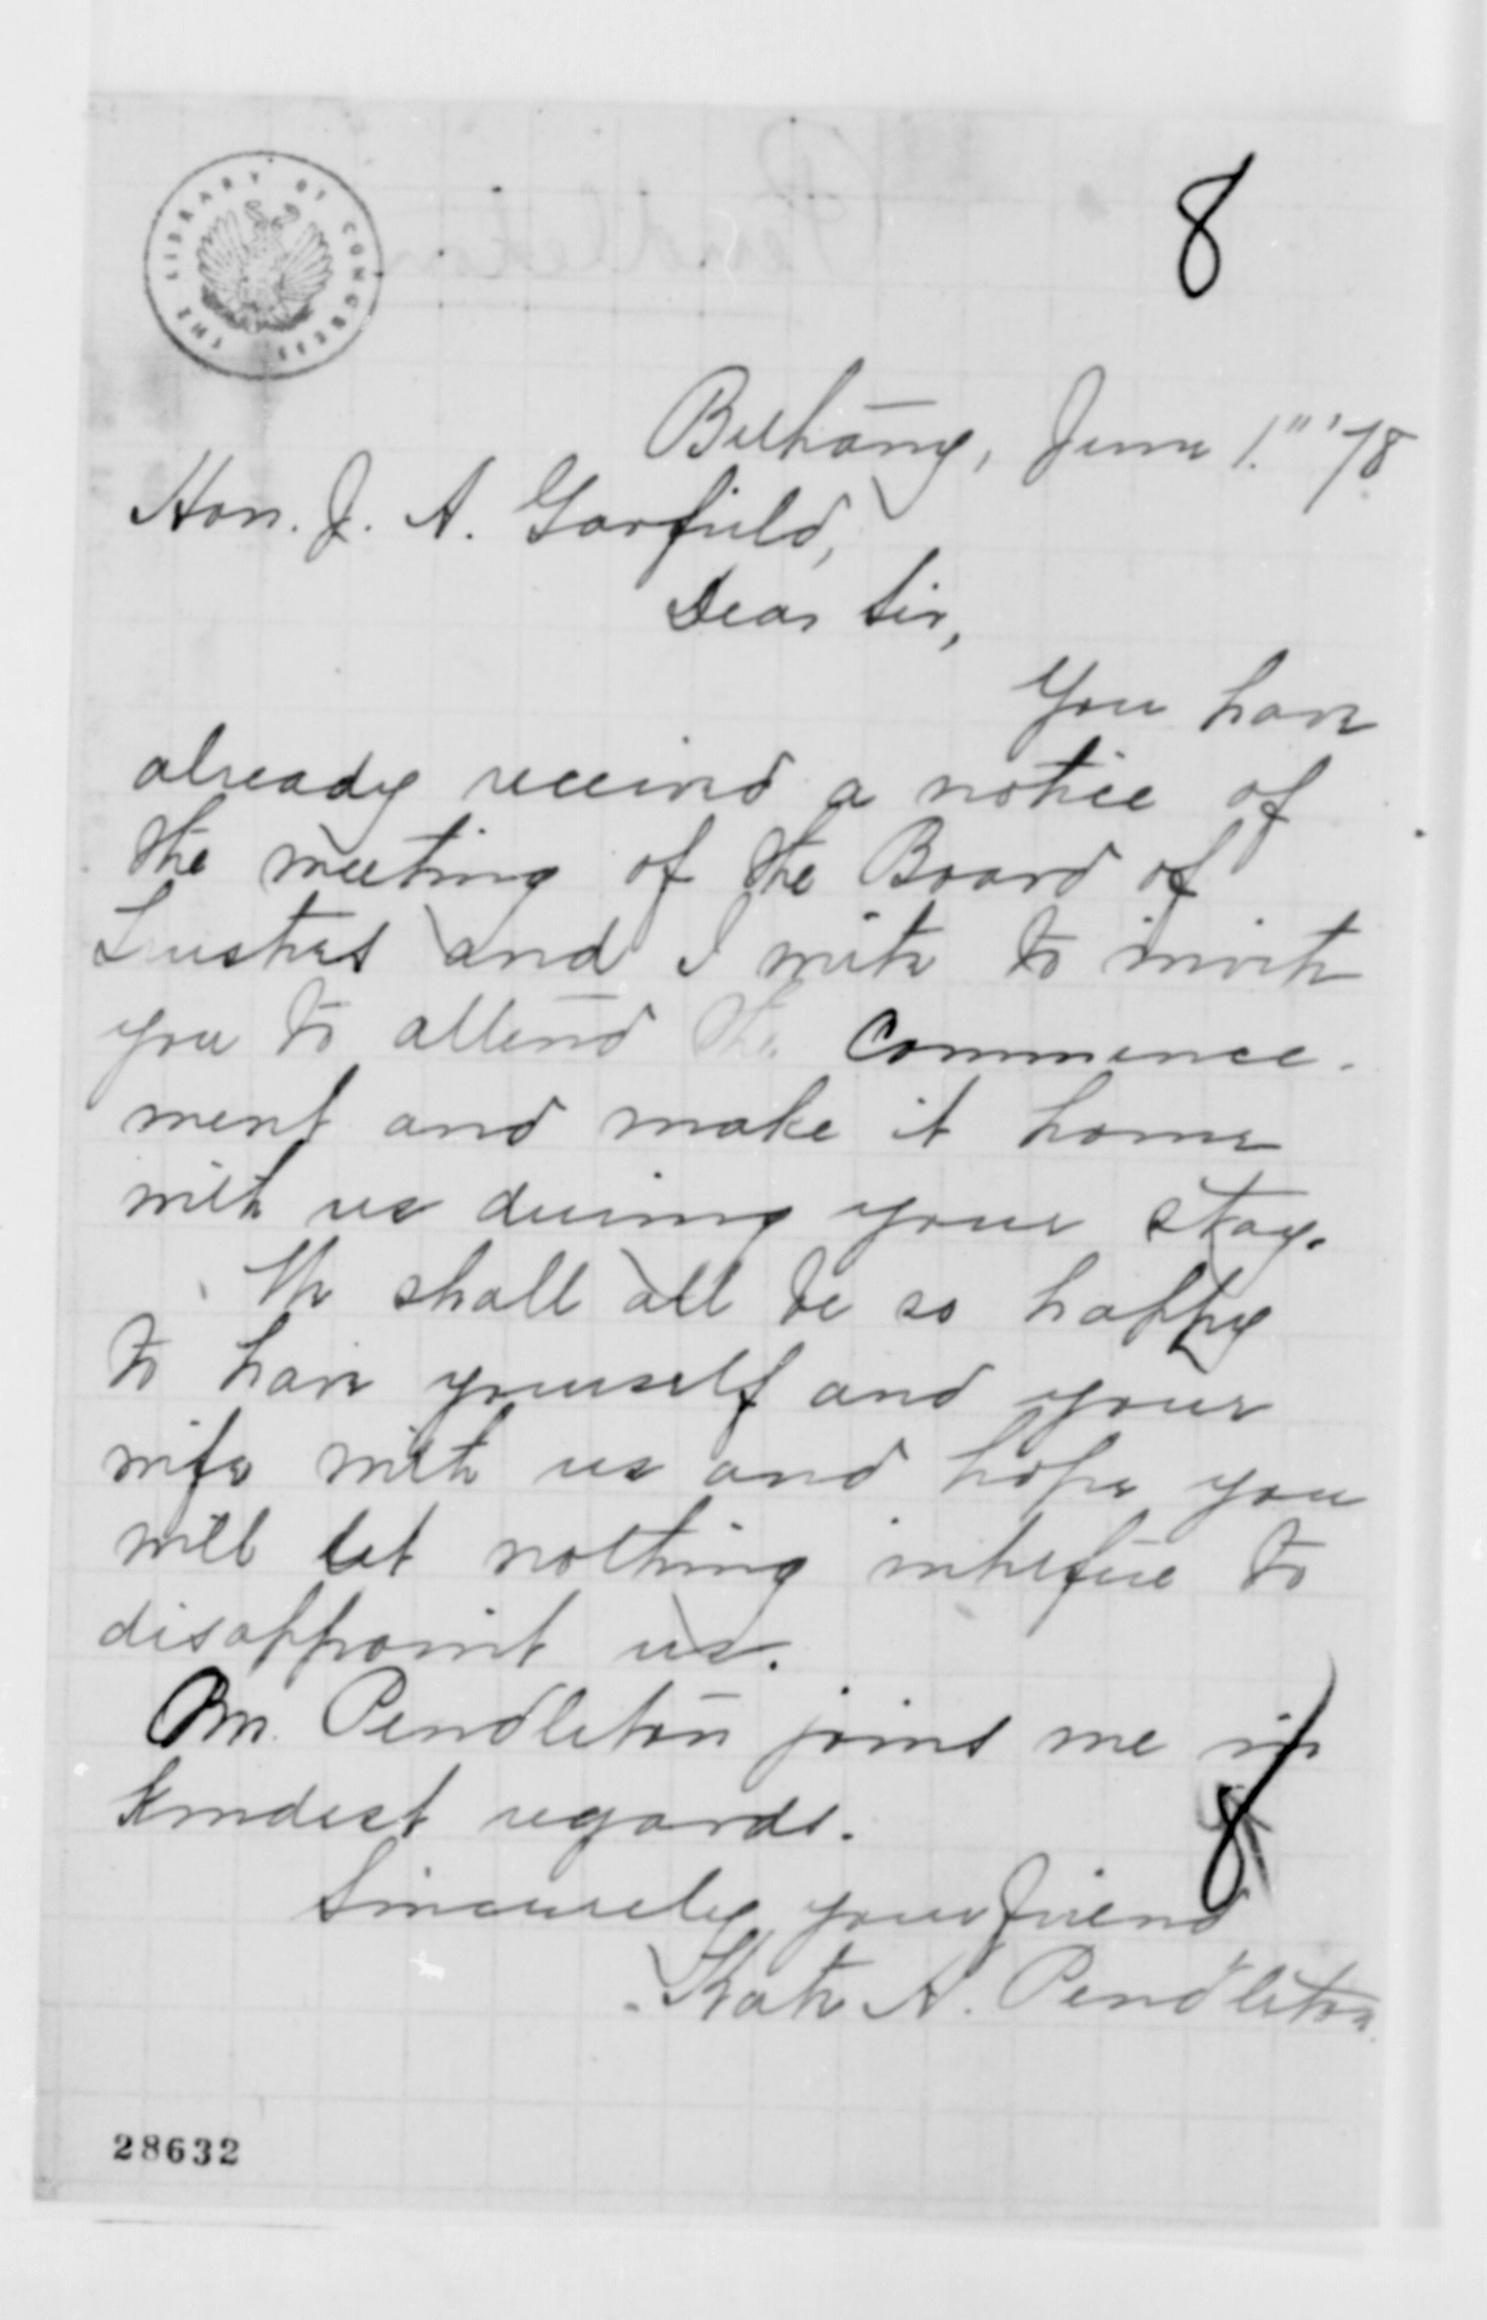 8
THE LIBRARY OF CONGRESS
Bethany, June 1." '78
Hon. J. A. Garfield,
Dear Sir,
You have
already received a notice of
the meeting of the Board of
Trustees and I write to invite
you to attend the Commence-
ment and make it home
with us during your stay.
We shall all be so happy
to have yourself and your
wife with us and hope you
will let nothing interfere to
disappoint us.
Pendleton joins me in
kindest regards.
8
Sincerely your friend
Kate A. Pendleton
28632